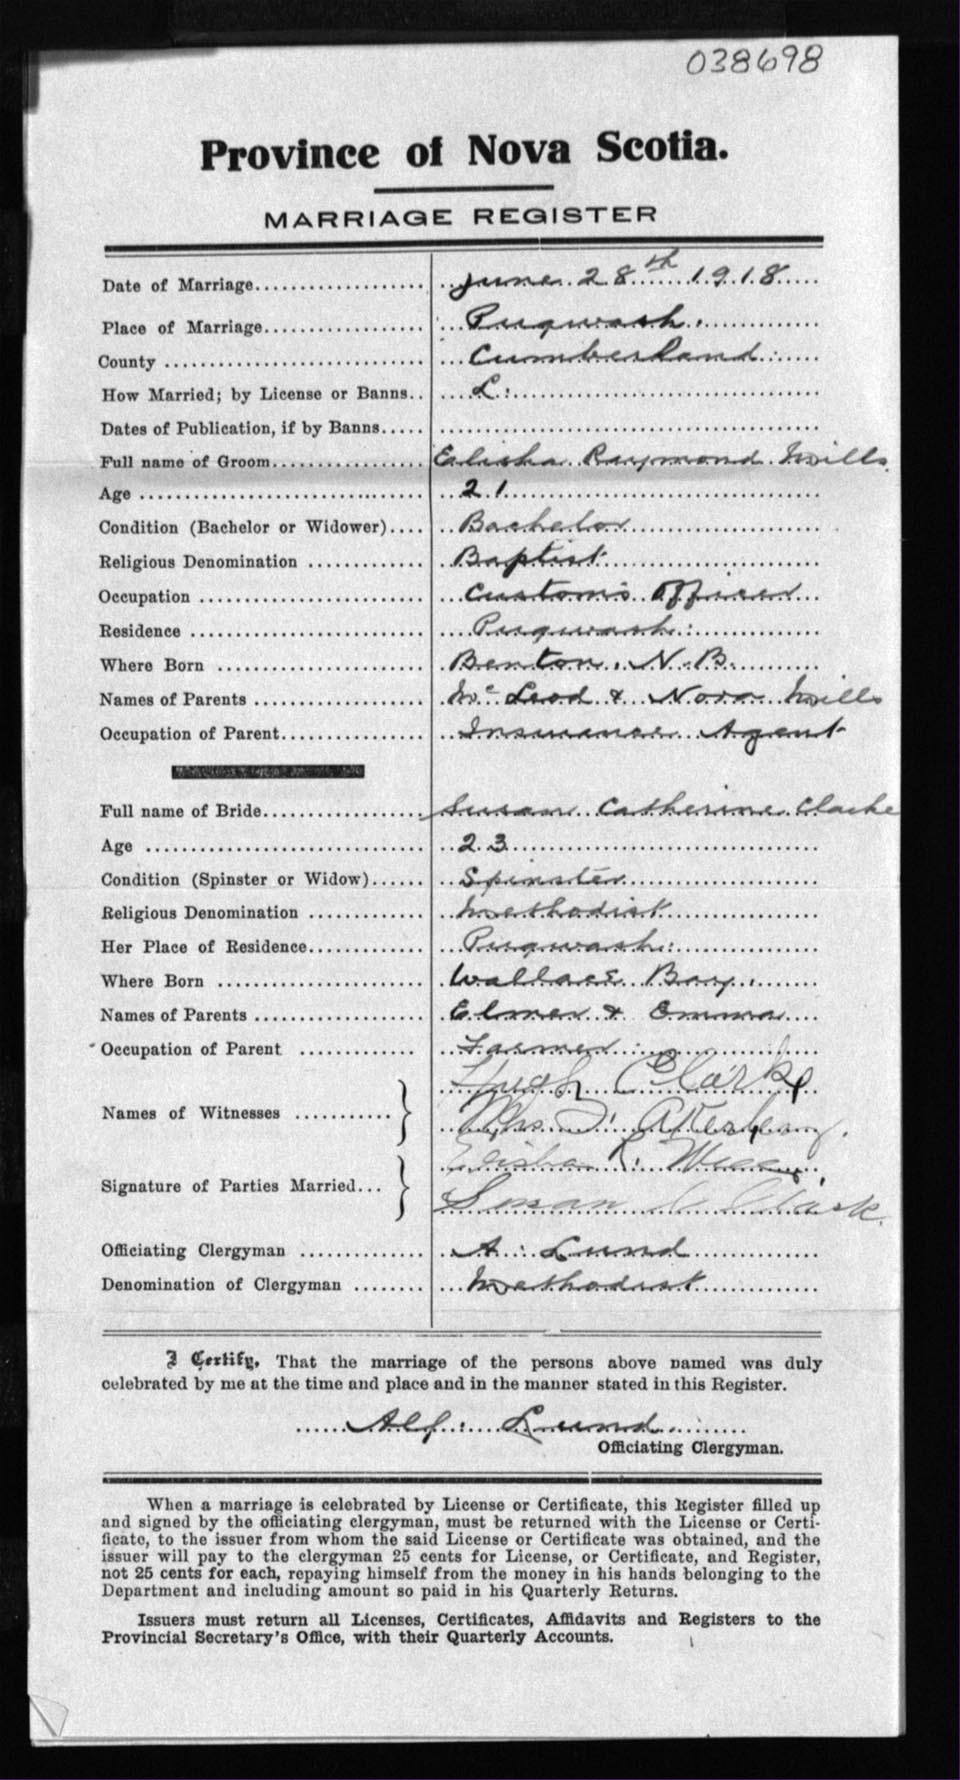 038698
Province of Nova Scotia.
MARRIAGE REGISTER
Date of Marriage................... June 28th 1918
Place of Marriage................. Pugwash.
County .......................... Cumberland
How Married; by License or Banns.. L.
Dates of Publication, if by Banns.....
Full name of Groom................ Elisha Raymond Mills
Age ............................. 21
Condition (Bachelor or Widower).... Bachelor
Religious Denomination ............ Baptist
Occupation ....................... Customs Officer
Residence ........................ Pugwash.
Where Born ..................... Benton, N.B.
Names of Parents ................. McLeod & Nora Mills
Occupation of Parent.............. Insurance Agent
Full name of Bride................. Susan Catherine Clarke
Age .............................. 23
Condition (Spinster or Widow)...... Spinster
Religious Denomination ............ Methodist
Her Place of Residence............ Pugwash.
Where Born ..................... Wallace Bay.
Names of Parents ................. Elmer & Emma
Occupation of Parent ............. Farmer
Hugh Clarke
Names of Witnesses ........... } Mrs
Elisha R. Mills
Signature of Parties Married... } Susan C Clark.
Officiating Clergyman ............. A. Lund
Denomination of Clergyman ........ Methodist
I Certify, That the marriage of the persons above named was duly
celebrated by me at the time and place and in the manner stated in this Register.
Alf. Lund
Officiating Clergyman.
When a marriage is celebrated by License or Certificate, this Register filled up
and signed by the officiating clergyman, must be returned with the License or Certi-
ficate, to the issuer from whom the said License or Certificate was obtained, and the
issuer will pay to the clergyman 25 cents for License, or Certificate, and Register,
not 25 cents for each, repaying himself from the money in his hands belonging to the
Department and including amount so paid in his Quarterly Returns.
Issuers must return all Licenses, Certificates, Affidavits and Registers to the
Provincial Secretary's Office, with their Quarterly Accounts.